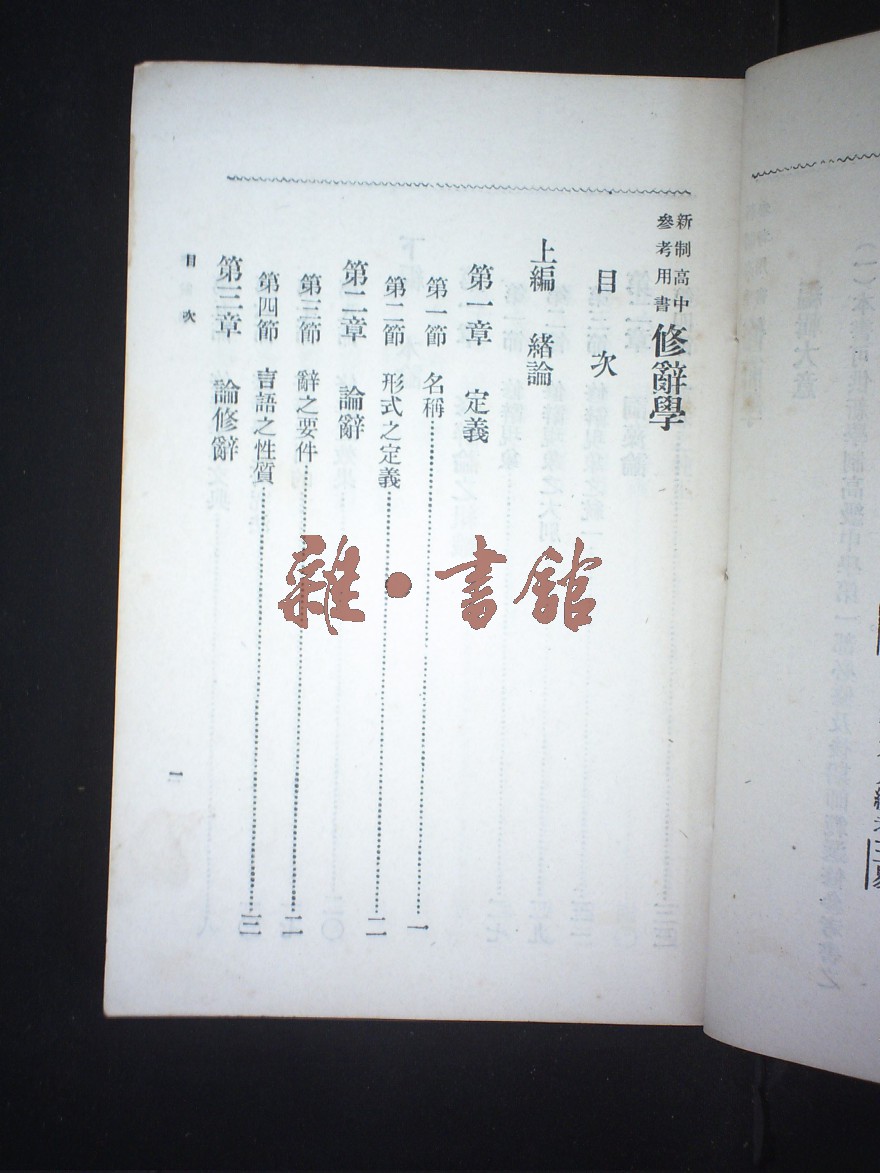 新制高中
參考用書
修辭學
目次
上編 緒論
第一章 定義
第一節 名稱……一
第二節 形式之定義……二
第二章 論辭
第三節 辭之要件……二
第四節 言語之性質……三
第三章 論修辭
目次
一
雜·書館